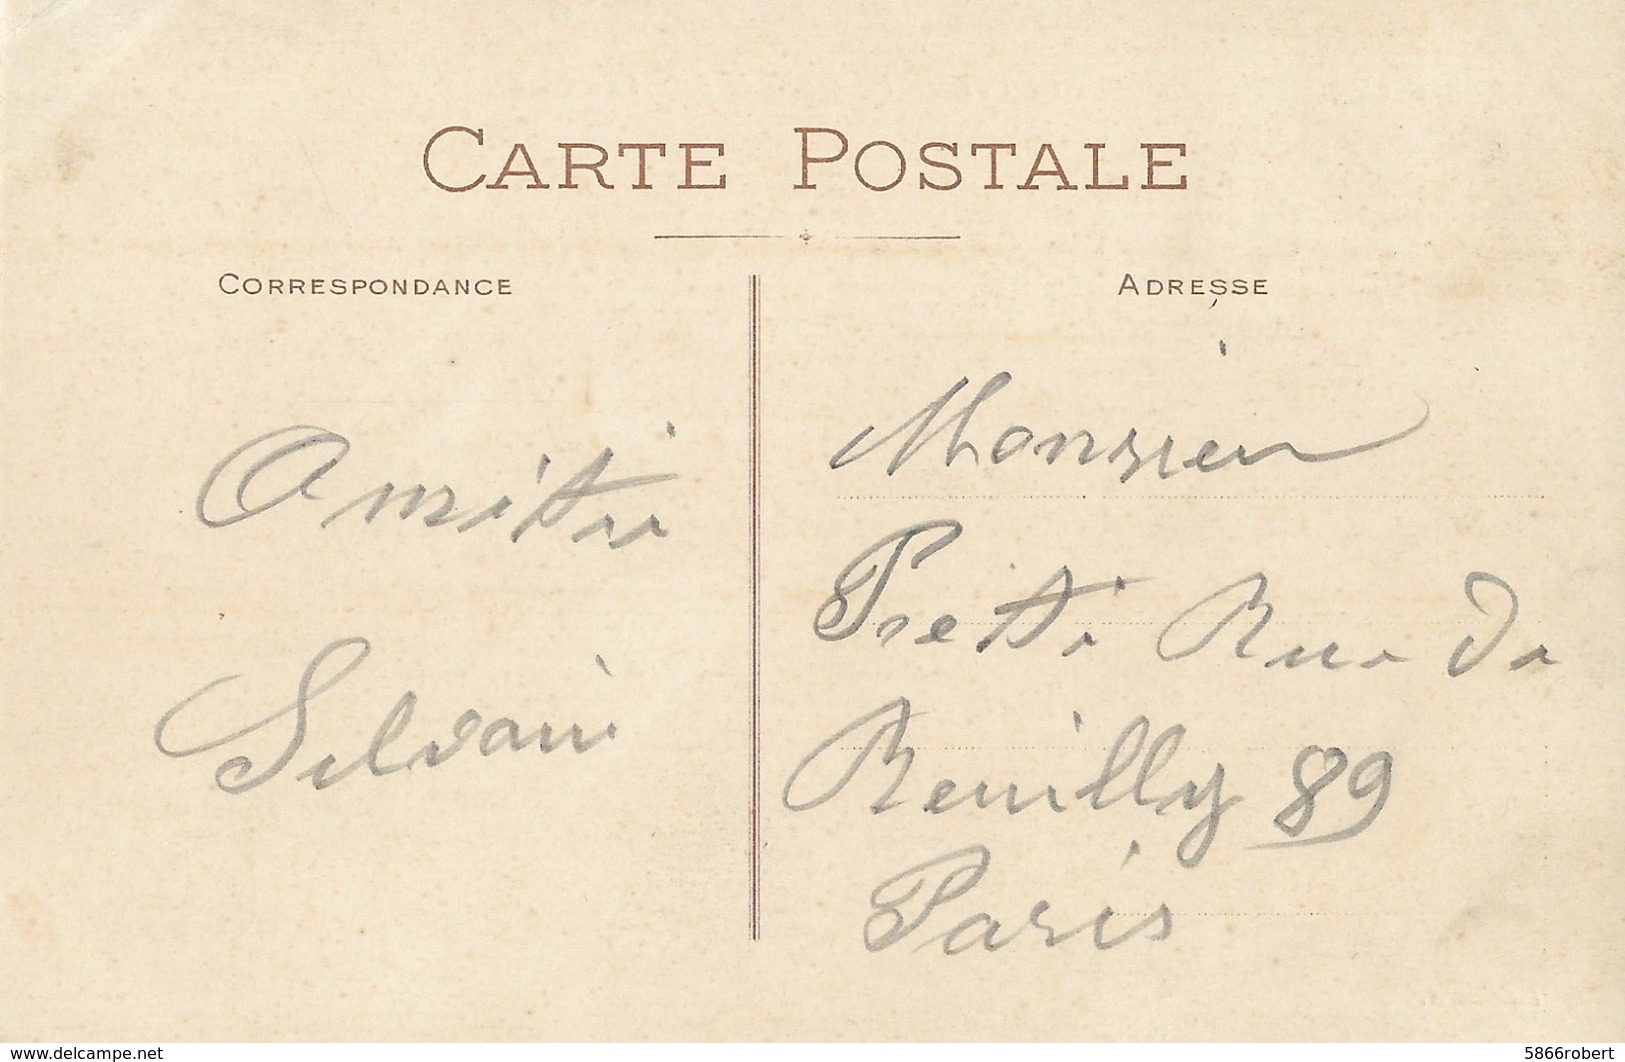 CARTE POSTALE
CORRESPONDANCE
ADRESSE
Amitié
Silvain
Monsieur
Preti Rue De
Reuilly 89
Paris
www.delcampe.net
5866robert